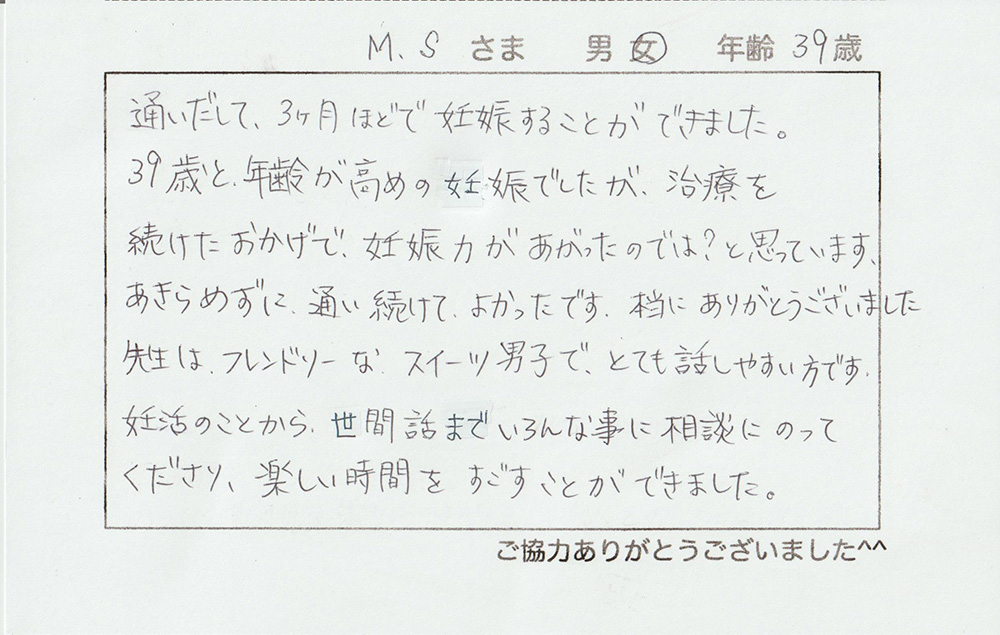 M.S さま 男 女 年齢 39歳
通いだして、3ヶ月ほどで妊娠することができました。
39歳と、年齢が高めの妊娠でしたが、治療を
続けたおかげで、妊娠力があがったのでは?と思っています、
あきらめずに、通い続けて、よかったです. 本当にありがとうございました
先生は、フレンドリーな、スイーツ男子で、とても話しやすい方です.
妊活のことから、世間話までいろんな事に相談にのって
くださり、楽しい時間をすごすことができました。
ご協力ありがとうございました^^